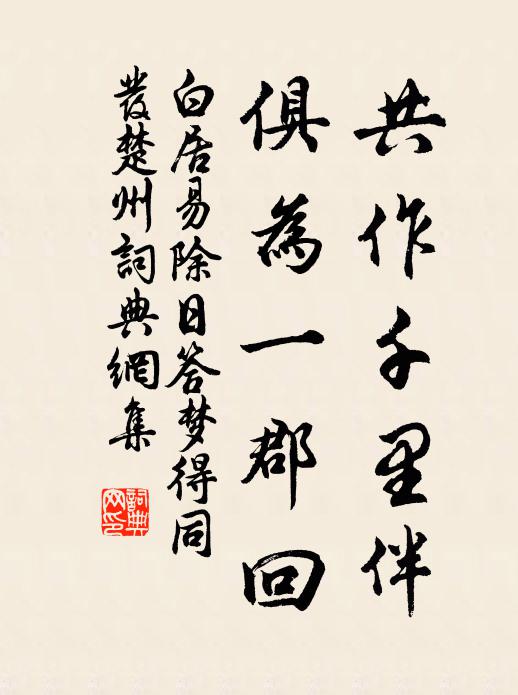 共作千里伴
俱為一郡回
白居易除日答梦得同
發楚州詞典網集
詞典
网印